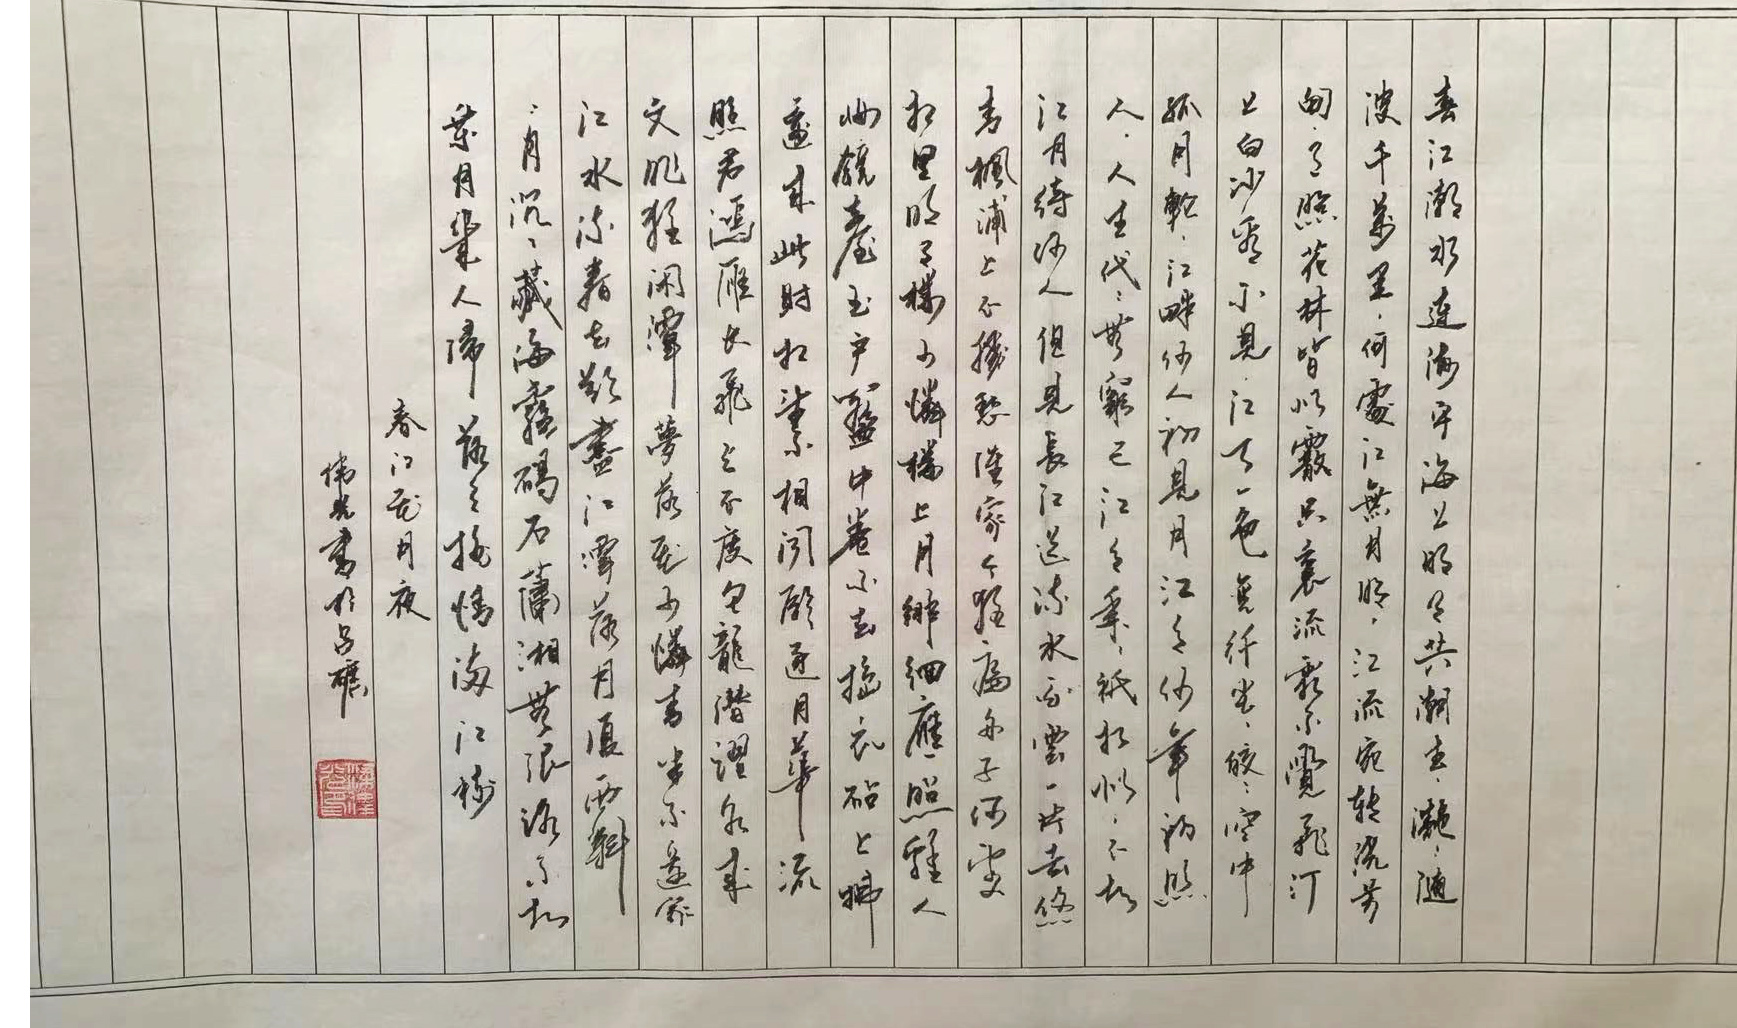 春江潮水連海平海上明月共潮生灧灧隨
波千萬里何處江無月明江流宛轉繞芳
甸月照花林皆似霰空裏流霜不覺飛汀
上白沙看不見江天一色無纖塵皎皎空中
孤月輪江畔何人初見月江月何年初照
人人生代代無窮已江月年年祇相似不知
江月待何人但見長江送流水白雲一片去悠
青楓浦上不勝愁誰家今夜扁舟子何處
相思明月樓可憐樓上月徘徊應照離人
妝鏡臺玉戶簾中卷不去搗衣砧上拂
還來此時相望不相聞願逐月華流
照君鴻雁長飛光不度魚龍潛躍水成
文昨夜閑潭夢落花可憐春半不還家
江水流春去欲盡江潭落月復西斜
斜月沉沉藏海霧碣石瀟湘無限路不知
乘月幾人歸落月搖情滿江樹
春江花月夜
書於